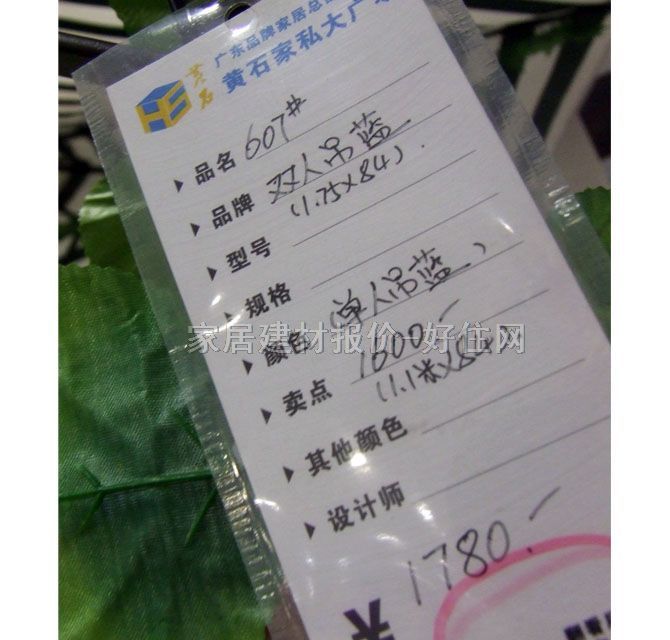 广东品牌家居总
黄石家私大广
黄石
HS
品名 607#
品牌 双人吊蓝
(1.75×84)
型号
规格
(单人吊蓝)
颜色 1600.-
卖点 (1.1米×84)
其他颜色
设计师
1780.-
家居建材报价-好住网